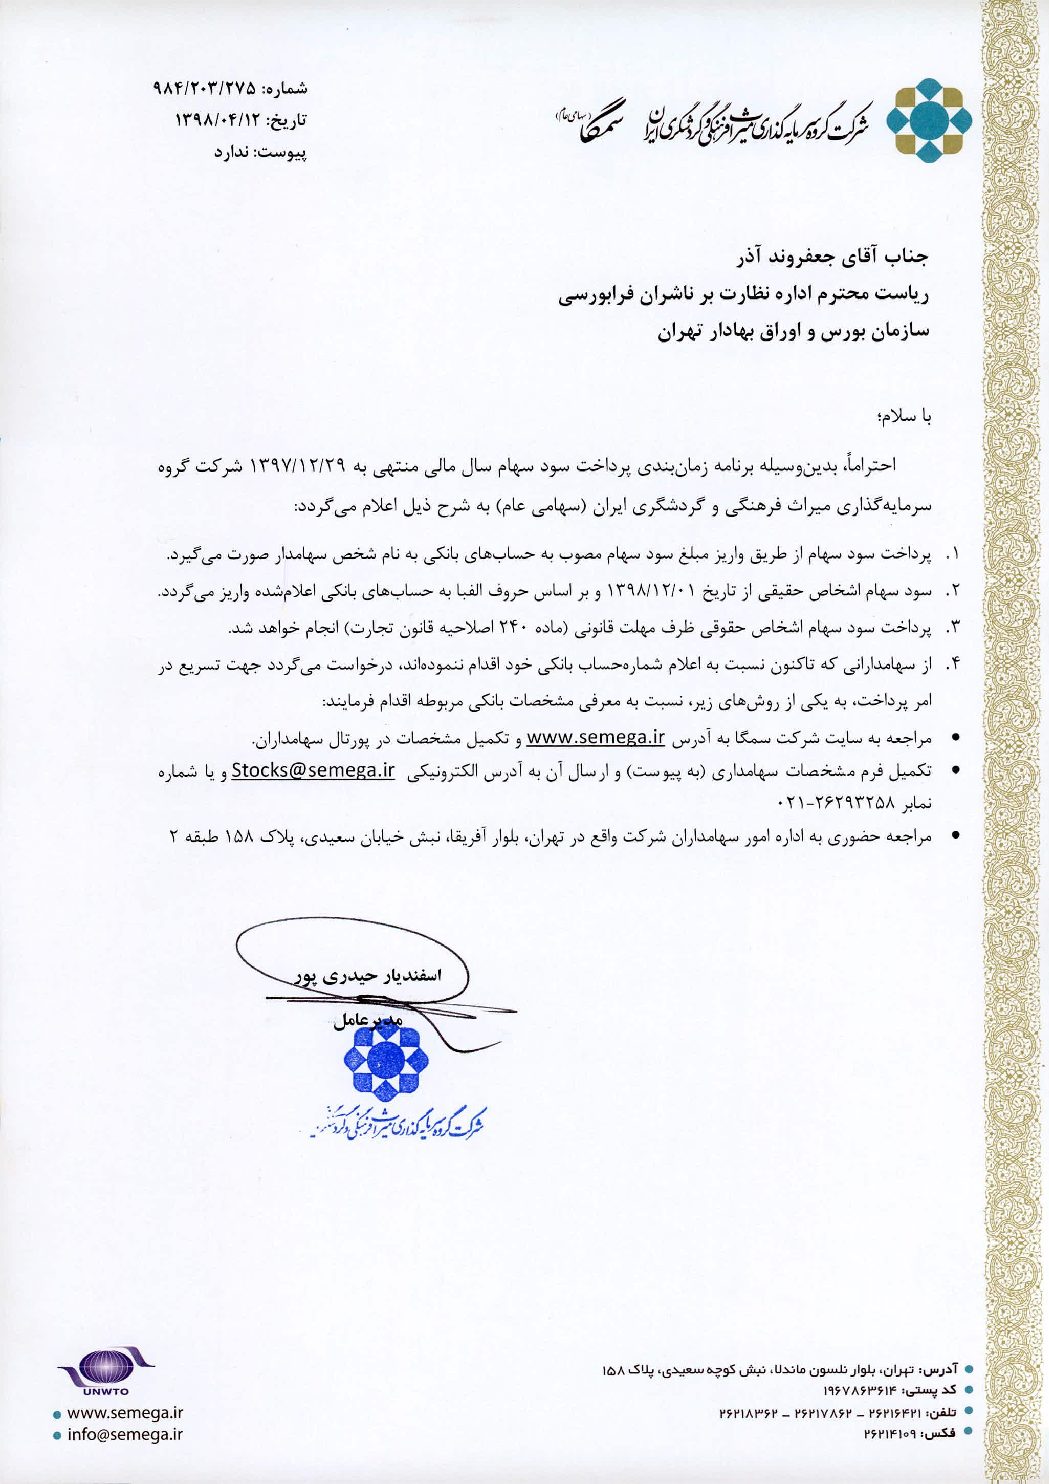 شرکت گروه سرمایه گذاری میراث فرهنگی و گردشگری ایران سمگا (سهامی عام)
شماره: ۹۸۴/۲۰۳/۲۷۵
تاریخ: ۱۳۹۸/۰۴/۱۲
پیوست: ندارد
جناب آقای جعفروند آذر
ریاست محترم اداره نظارت بر ناشران فرابورسی
سازمان بورس و اوراق بهادار تهران
با سلام؛
احتراماً، بدین‌وسیله برنامه زمان‌بندی پرداخت سود سهام سال مالی منتهی به ۱۳۹۷/۱۲/۲۹ شرکت گروه
سرمایه‌گذاری میراث فرهنگی و گردشگری ایران (سهامی عام) به شرح ذیل اعلام می‌گردد:
۱. پرداخت سود سهام از طریق واریز مبلغ سود سهام مصوب به حساب‌های بانکی به نام شخص سهامدار صورت می‌گیرد.
۲. سود سهام اشخاص حقیقی از تاریخ ۱۳۹۸/۱۲/۰۱ و بر اساس حروف الفبا به حساب‌های بانکی اعلام‌شده واریز می‌گردد.
۳. پرداخت سود سهام اشخاص حقوقی ظرف مهلت قانونی (ماده ۲۴۰ اصلاحیه قانون تجارت) انجام خواهد شد.
۴. از سهامدارانی که تاکنون نسبت به اعلام شماره‌حساب بانکی خود اقدام ننموده‌اند، درخواست می‌گردد جهت تسریع در
امر پرداخت، به یکی از روش‌های زیر، نسبت به معرفی مشخصات بانکی مربوطه اقدام فرمایند:
• مراجعه به سایت شرکت سمگا به آدرس www.semega.ir و تکمیل مشخصات در پورتال سهامداران.
• تکمیل فرم مشخصات سهامداری (به پیوست) و ارسال آن به آدرس الکترونیکی Stocks@semega.ir و یا شماره
نمابر ۰۲۱-۲۶۲۹۳۲۵۸
• مراجعه حضوری به اداره امور سهامداران شرکت واقع در تهران، بلوار آفریقا، نبش خیابان سعیدی، پلاک ۱۵۸ طبقه ۲
اسفندیار حیدری پور
مدیرعامل
شرکت گروه سرمایه گذاری میراث فرهنگی و گردشگری
آدرس: تهران، بلوار نلسون ماندلا، نبش کوچه سعیدی، پلاک ۱۵۸
کد پستی: ۱۹۶۷۸۶۳۶۱۴
تلفن: ۲۶۲۱۶۴۲۱ – ۲۶۲۱۷۸۶۲ – ۲۶۲۱۸۳۶۲
فکس: ۲۶۲۱۴۱۰۹
UNWTO
www.semega.ir
info@semega.ir